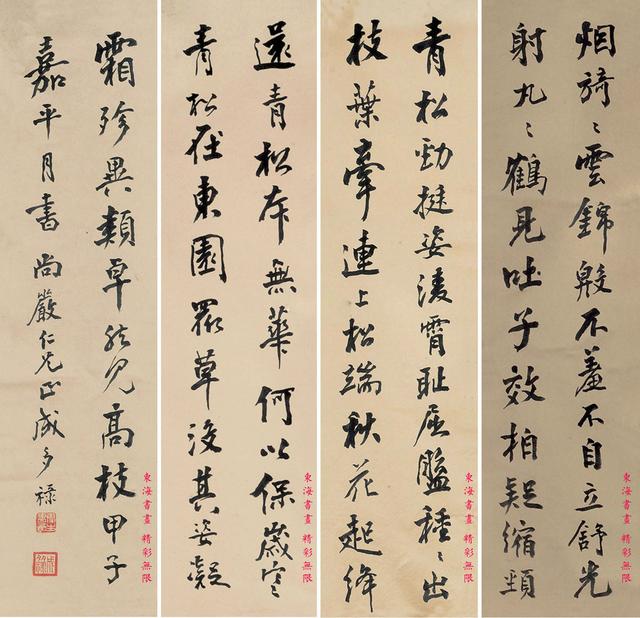 烟旖〻雲錦殷不羞不自立舒光
射丸〻鶴見吐子效柏疑縮頸
青松勁挺姿凌霄恥屈盤種〻出
枝葉牽連上松端秋花起絳
還青松本無華何以保歲寒
青松在東園眾草沒其姿凝
霜殄異類卓然見高枝甲子
嘉平月書尚嚴仁兄正成多祿
東海書畫 精彩無限
東海書畫 精彩無限
東海書畫 精彩無限
東海書畫 精彩無限